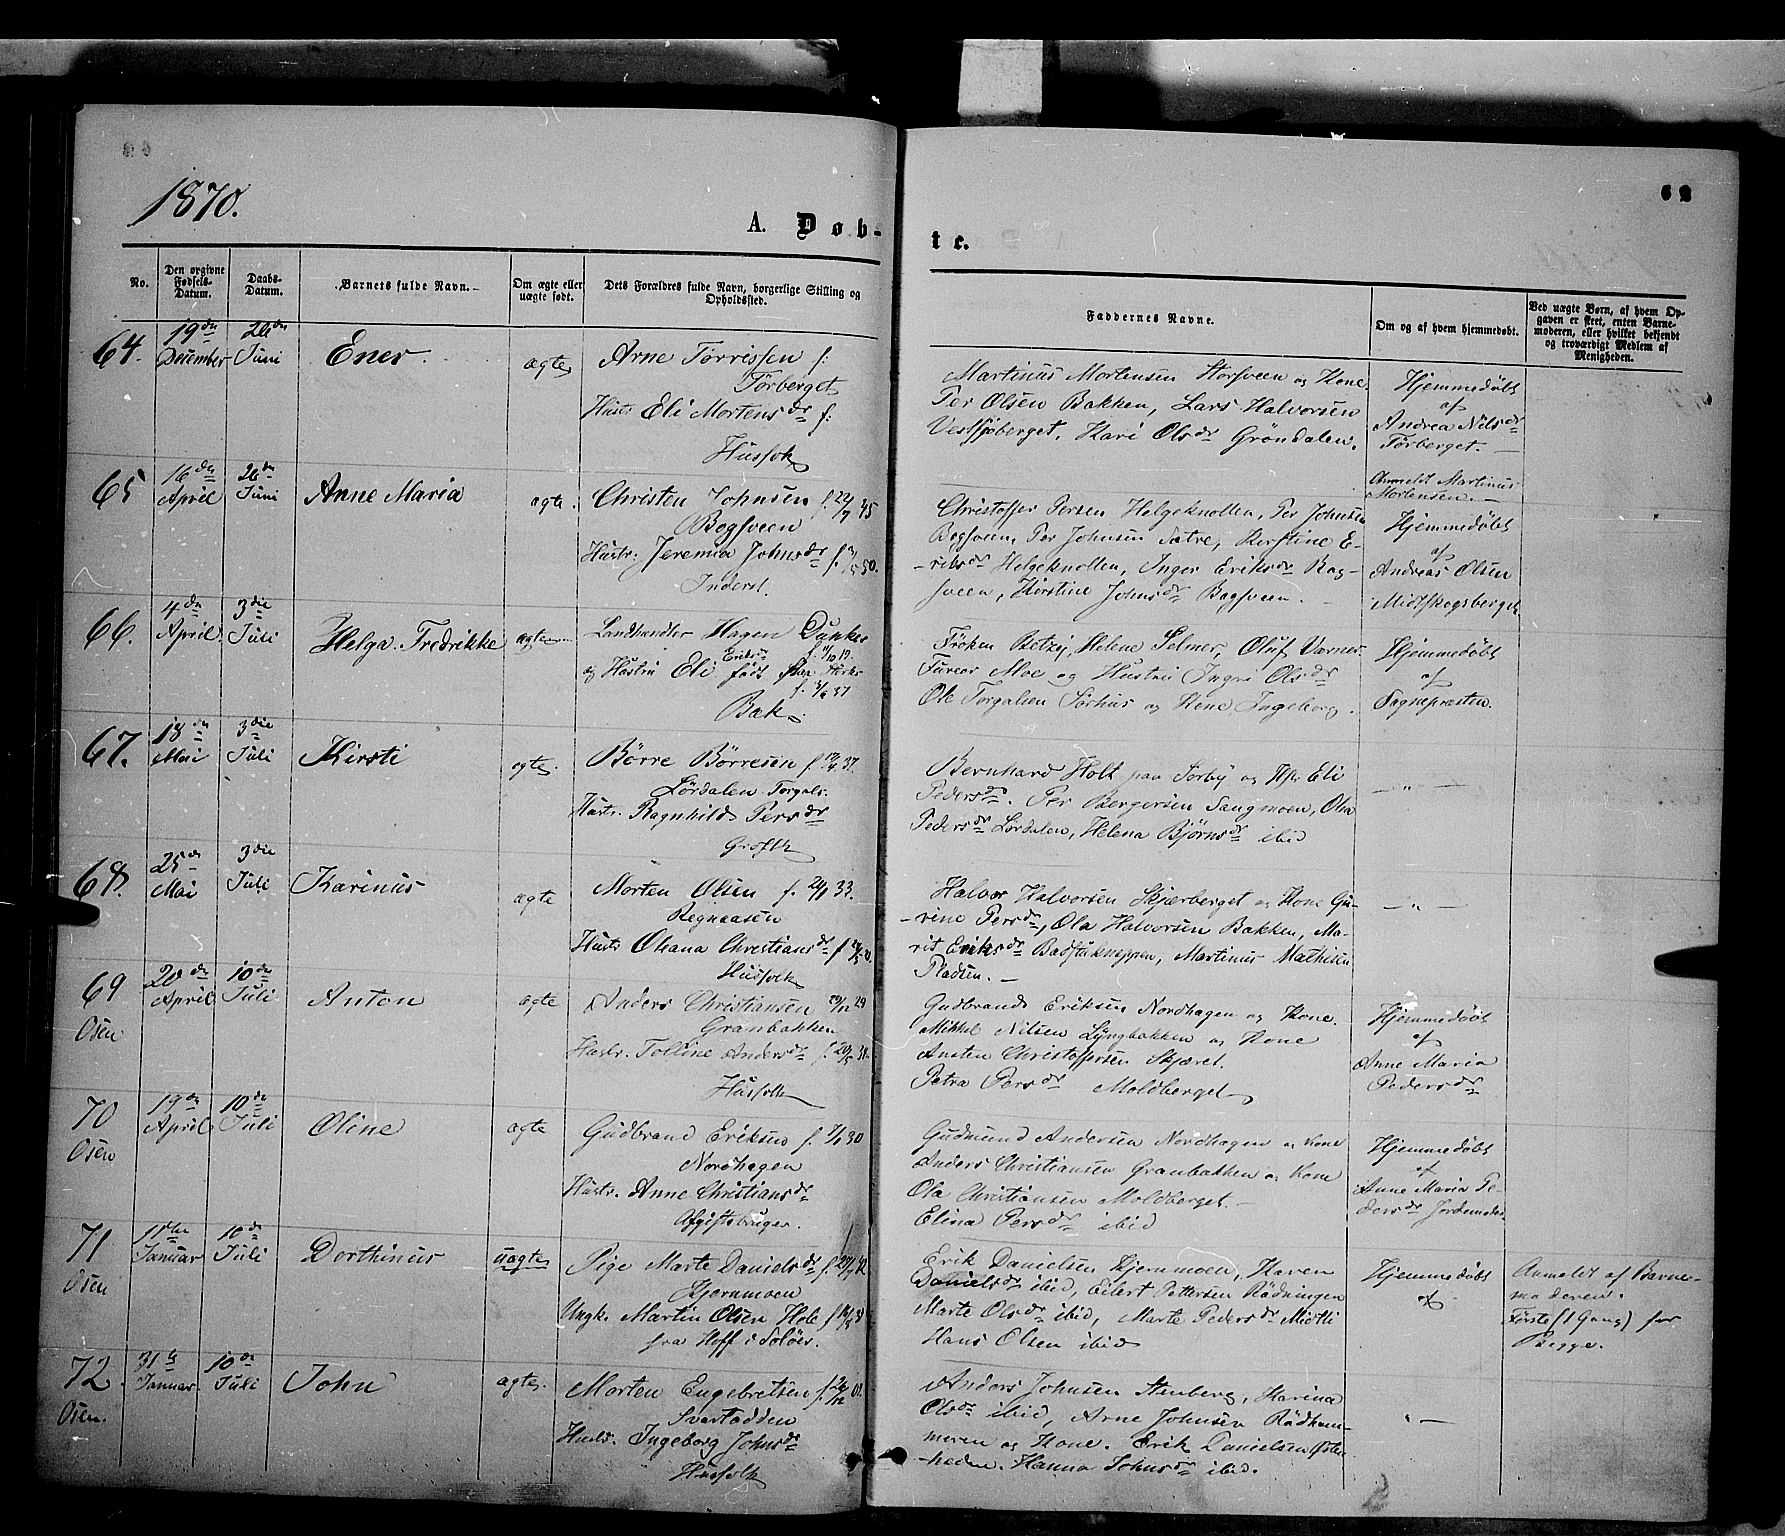 1870.
62
A. Døb-
te.
No.
Den opgivne Fødsels-Datum.
Daabs-Datum.
Barnets fulde Navn.
Om ægte eller uægte født.
Dets Forældres fulde Navn, borgerlige Stilling og Opholdssted.
Faddernes Navne.
Om og af hvem hjemmedøbt.
Ved uægte Børn, af hvem Opgaven er skeet, enten Barnemoderen, eller hvilket bekjendt og troværdigt Medlem af Menigheden.
64.
19de December
26de Juni
Ener.
ægte
Arne Tørrissen f:
Tørberget
Hustr. Eli Mortensdr f:
Husfolk
Martinus Mortensen Storsveen og Kone
Per Olsen Bakken, Lars Halvorsen
Vestsjøberget, Kari Olsdr Gröndalen.
Hjemmedøbt
af
Andrea Nilsdr
Tørberget.
Anmeldt Martinus
Mortensen.
65
16de April
26de Juni
Anne Maria
ægte.
Christen Johnsen f. 22/7 45
Bogsveen
Hustr. Jeremia Johnsdr 50.
Inderst.
Christoffer Persen Helgeknollen, Per Johnsen
Bogsveen, Per Johnsen Sætre, Kerstine E-
riksdr Helgeknollen, Inger Eriksdr Bag-
sveen, Kirstine Johnsdr Bagsveen.
Hjemmedøbt
af
Andreas Olsen
Midtskogsberget
66.
4de April
3die Juli
Helga Fredrikke
ægte
Landhandler Hagen Dunker
f. 11/10 19.
og Hustru Eli Eriksdr født
f. 37
Bak
Frøken Betzy Helene Selmer, Oluf Varner
Furear Moe og Hustru Ingri Olsdr
Ole Torgalsen Sørhus og Kone Ingeborg.
Hjemmedøbt
af
Sognepræsten.
67.
18de Mai
3die Juli
Kirsti
ægte
Børre Børresen f. 37.
Lørdalen Torgals.
Hustr. Ragnhild Persdr
Grosfk
Bernhard Holt paa Sørby og Hst. Eli
Pedersdr. Per Bergersen Sangmoen, Olea
Pedersdr Lørdalen, Helena Bjørnsdr ibid
— " —
68.
25de Mai
3die Juli
Karinus
ægte
Morten Olsen f. 24/1 33.
Regnaasen
Hustr Oleana Christiansdr f.
Husfolk
Halvor Halvorsen Skjærberget og Kone Gu-
rine Persdr, Ola Halvorsen Bakken, Ma-
rit Eriksdr Badstuknappen, Martinus Mathisen
Pladsen.
— " —
69
Osen
20de April
10de Juli
Anton
ægte
Anders Christiansen 29
Granbakken
Hustr. Tolline Andersdr f. 38.
Husfolk
Gudbrand Eriksen Nordhagen og Kone.
Mikkel Nilsen Lyngbakken og Kone
Austen Christoffersen Skjæret.
Petra Persdr Moldberget
Hjemmedøbt
af
Anne Maria
Pedersdr
70
Osen
19de April
10de Juli
Oline
ægte
Gudbrand Eriksen f. 7/1 30
Nordhagen
Hustr. Anne Christiansdr
Afgiftsbruger.
Gudmund Andersen Nordhagen og Kone
Anders Christiansen Granbakken og Kone
Ola Christiansen Moldberget.
Elina Persdr ibid
Hjemmedøbt
af
Anne Maria Pe-
dersdr Jordemoder
71
Osen
11te Januar
10de Juli
Dorthinus
uægte
Pige Marte Danielsdr f. 42
Kjernmoen
Ungk. Martin Olsen Hole f.
fra Hoff i Soløer.
Erik Danielsen Kjernmoen, Karen
Danielsdr ibid, Eilert Pettersen Rødningen
Marte Olsdr ibid, Marte Pedersdr Midtli
Hans Olsen ibid
Hjemmedøbt
af
Anmeldt af Barne-
moderen.
Første (1 Gang) for
Begge.
72.
Osen.
31te Januar
10de Juli
John
ægte.
Morten Engebretsen f.
Svartadden
Hustr. Ingeborg Johnsdr
Husfolk
Anders Johnsen Stenberg, Karina
Olsdr ibid, Arne Johnsen Rødham-
meren og Kone. Erik Danielsen Østen-
heden. Hanna Johnsdr ibid.
" —